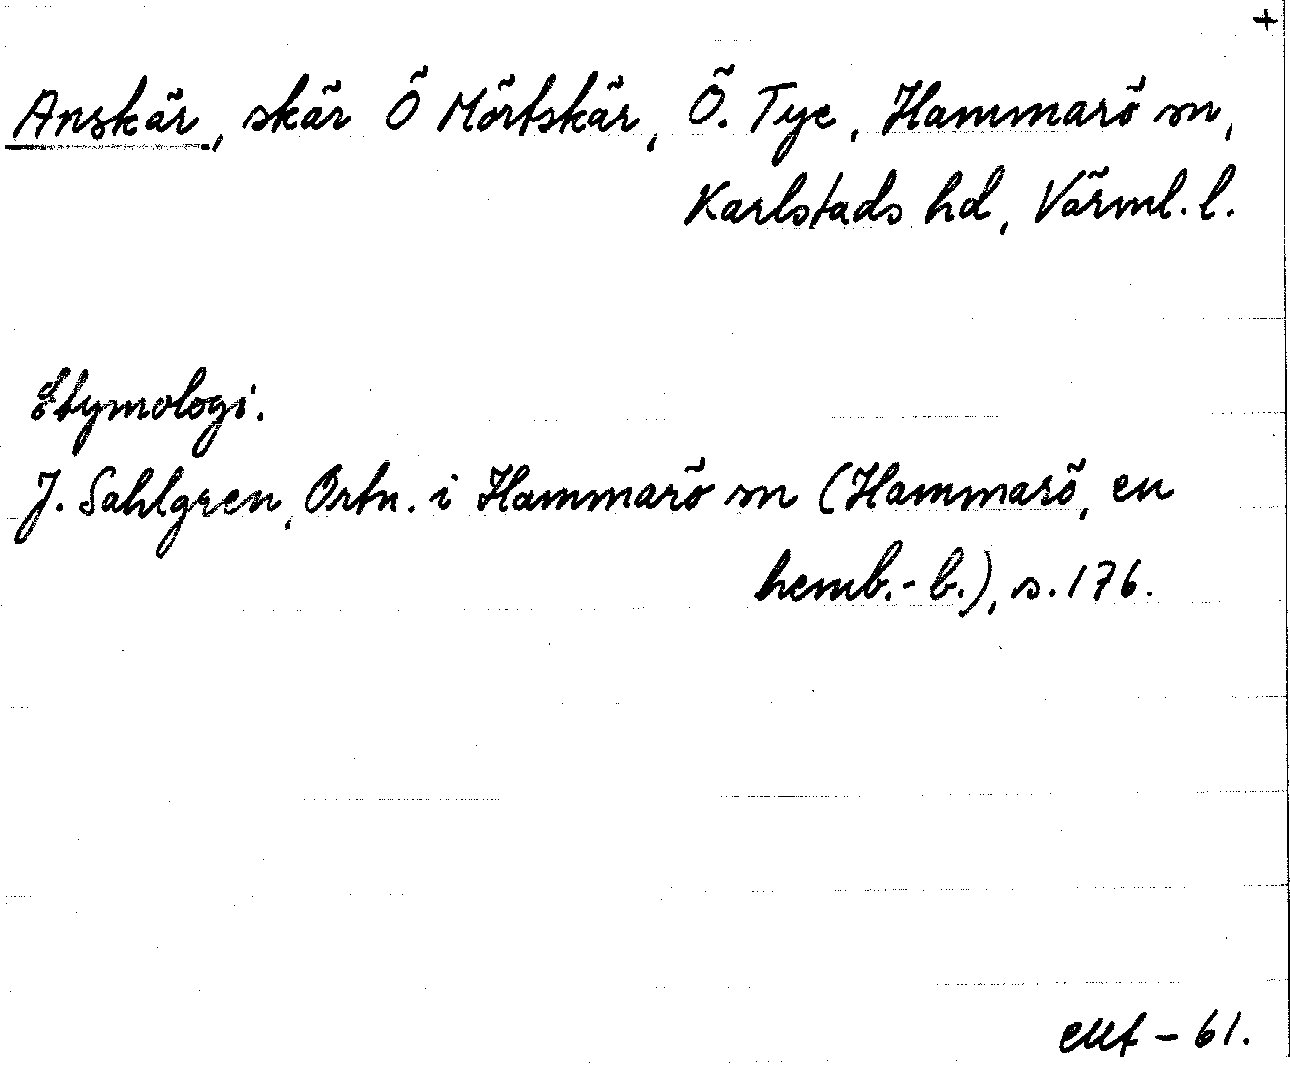 +
Anskär, skär Ö Mörtskär, Ö. Tye, Hammarö sn,
Karlstads hd, Värml. l.
Etymologi.
J. Sahlgren, Ortn. i Hammarö sn (Hammarö, en
hemb.-b.), s. 176.
- 61.